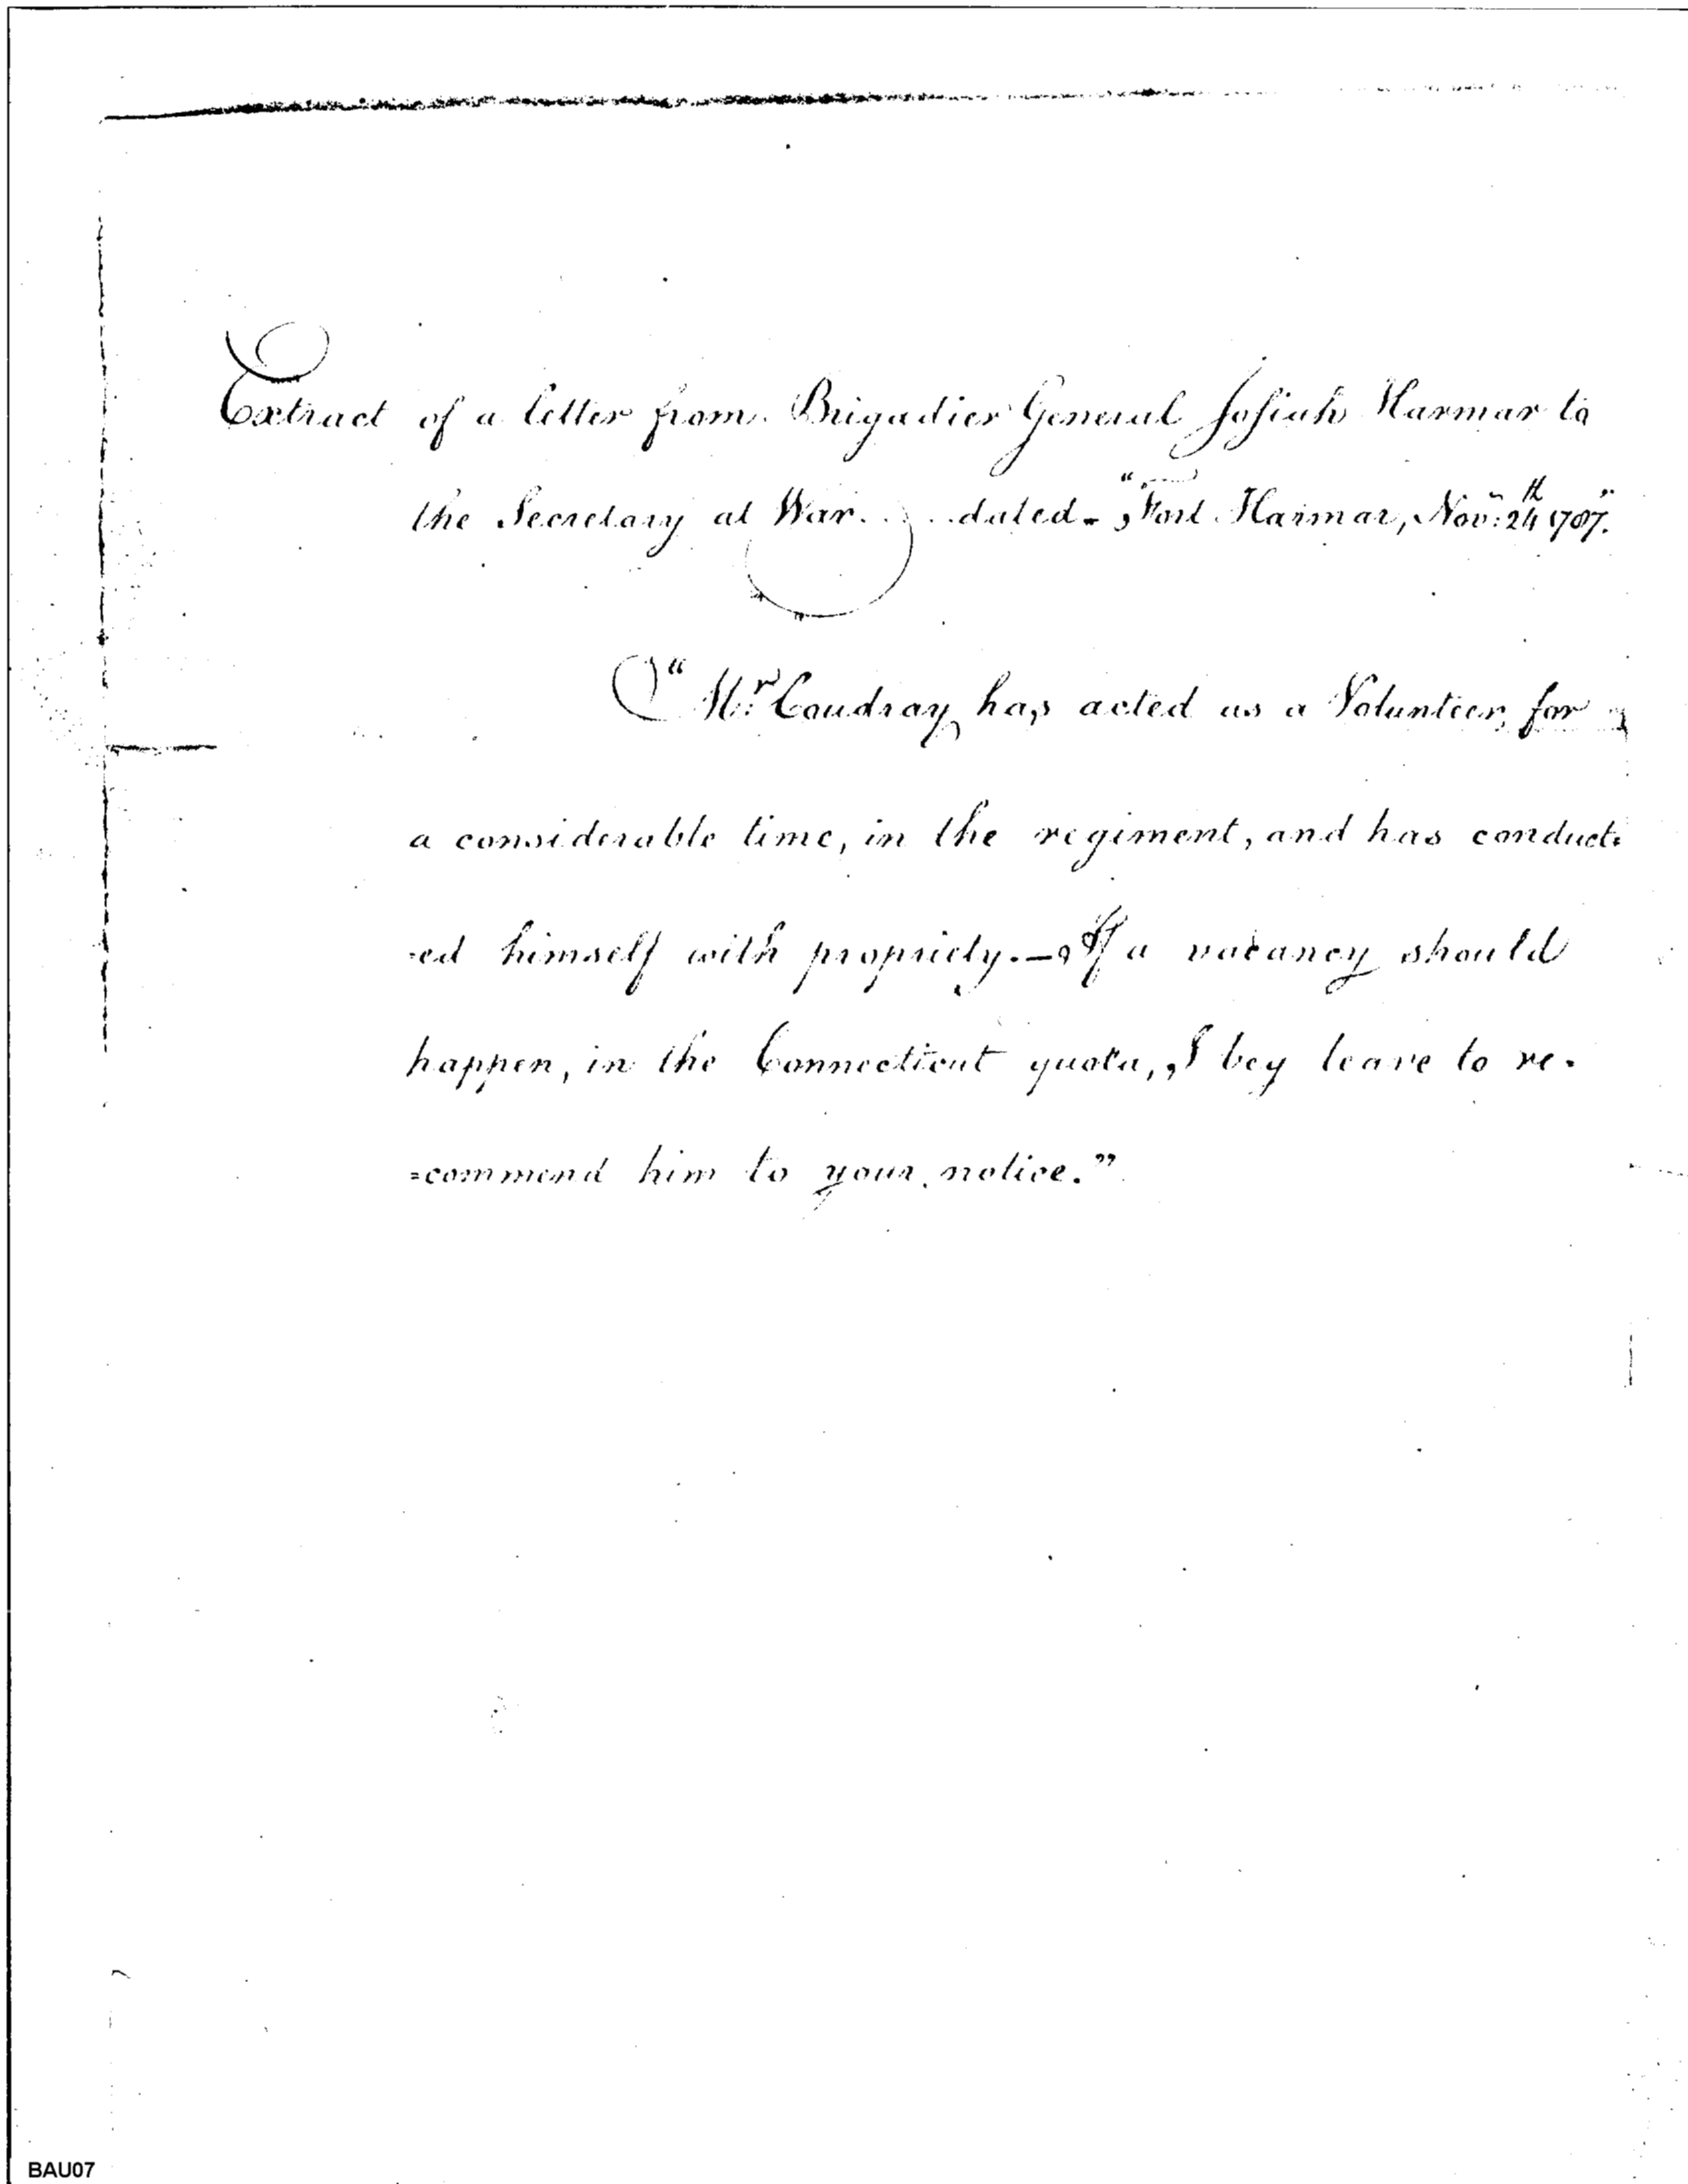 Extract of a letter from Brigadier General Josiah Harmar to
the Secretary at War. . . . dated - "Fort Harmar, Novr: 24th 1787."
"Mr: Coudray has acted as a Volunteer, for
a considerable time, in the regiment, and has conduct=
=ed himself with propriety. — If a vacancy should
happen, in the Connecticut quota, I beg leave to re=
=commend him to your notice."
BAU07